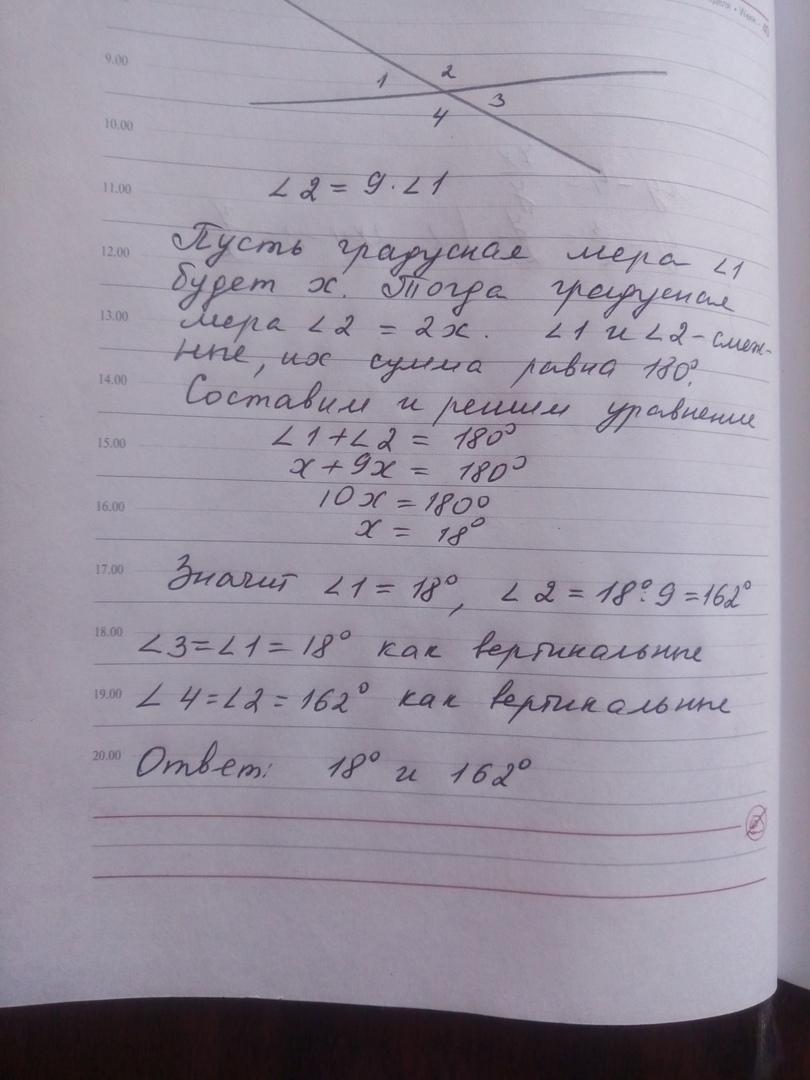 9.00
1 2
3
4
10.00
∠2 = 9·∠1
11.00
Пусть градусная мера ∠1
12.00
будет x. Тогда градусная
13.00
мера ∠2 = 2x. ∠1 и ∠2 - смеж-
ные, их сумма равна 180°.
14.00
Составим и решим уравнение
∠1+∠2 = 180°
15.00
x+9x = 180°
10x = 180°
16.00
x = 18°
17.00
Значит ∠1 = 18°, ∠2 = 18°:9 = 162°
18.00
∠3=∠1=18° как вертикальные
19.00
∠4=∠2=162° как вертикальные
20.00
Ответ: 18° и 162°